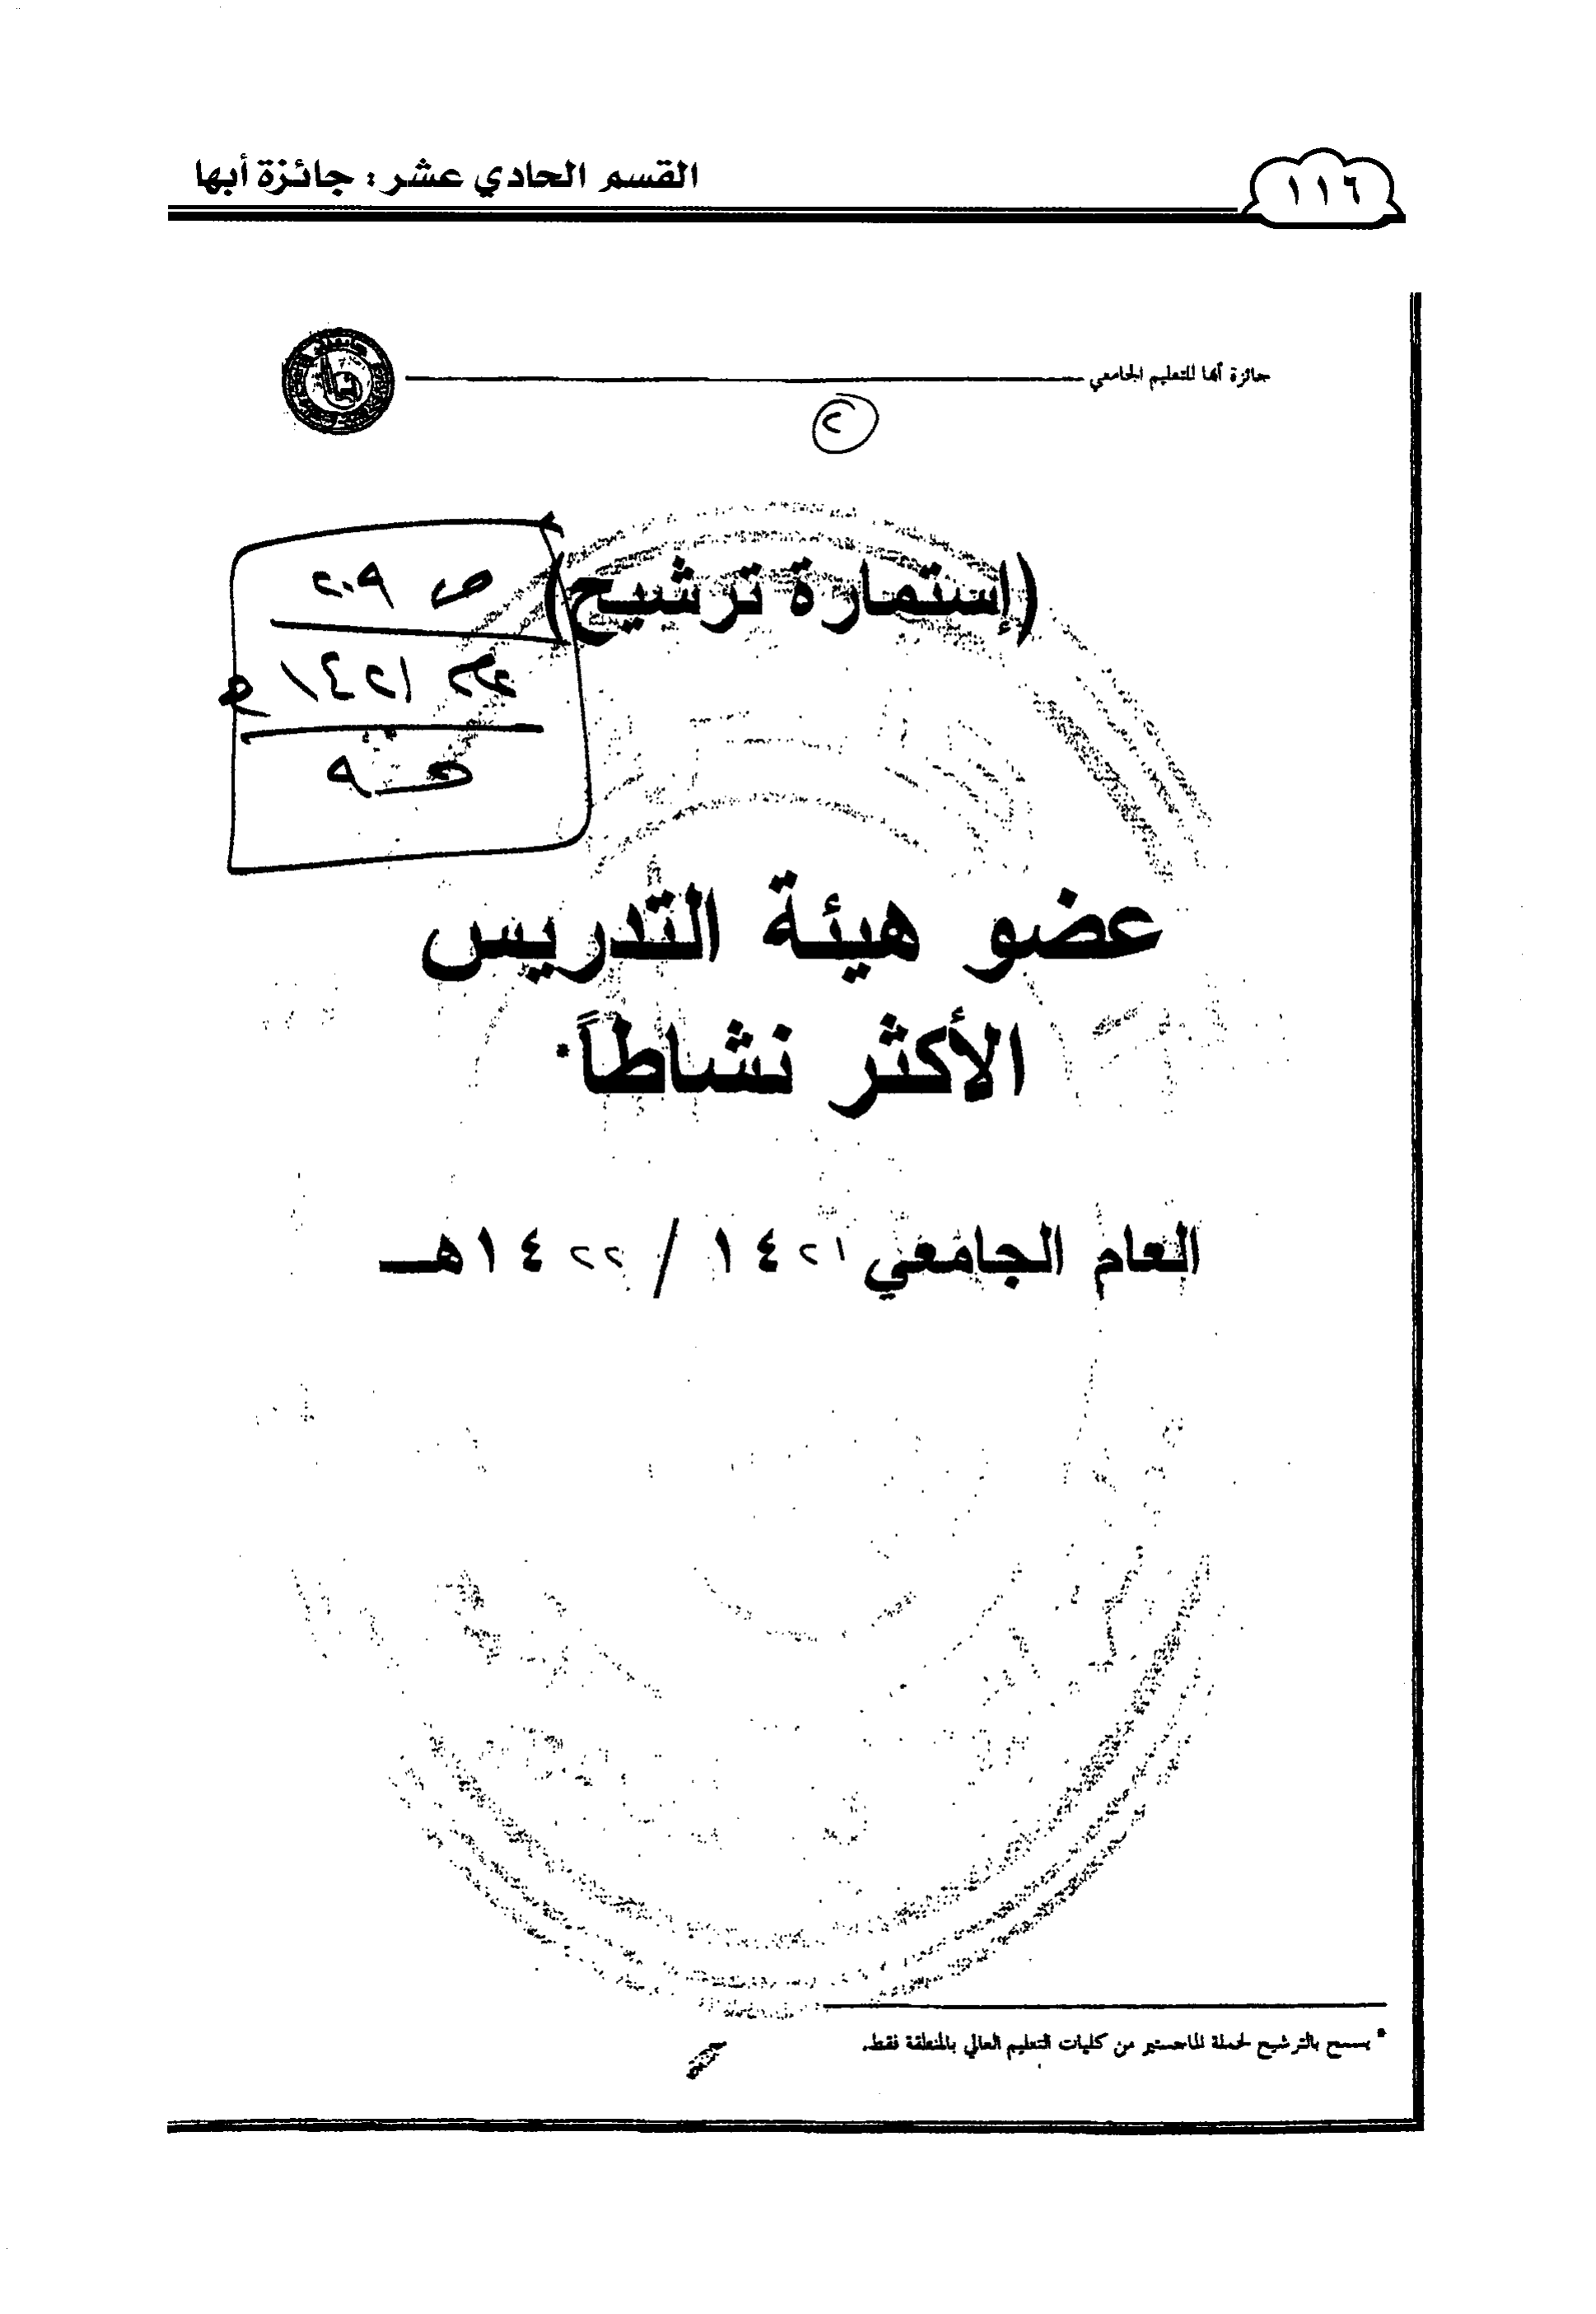 ١١٦
القسم الحادي عشر : جائزة أبها
جائزة أبها للتعليم الجامعي
٢
(إستمارة ترشيح)
ص ٢٠٩
١٤٢١
عضو هيئة التدريس
الأكثر نشاطاً*
العام الجامعي ١٤٢١ / ١٤٢٢هـ
* يسمح بالترشيح لحملة الماجستير من كليات التعليم العالي بالمنطقة فقط.